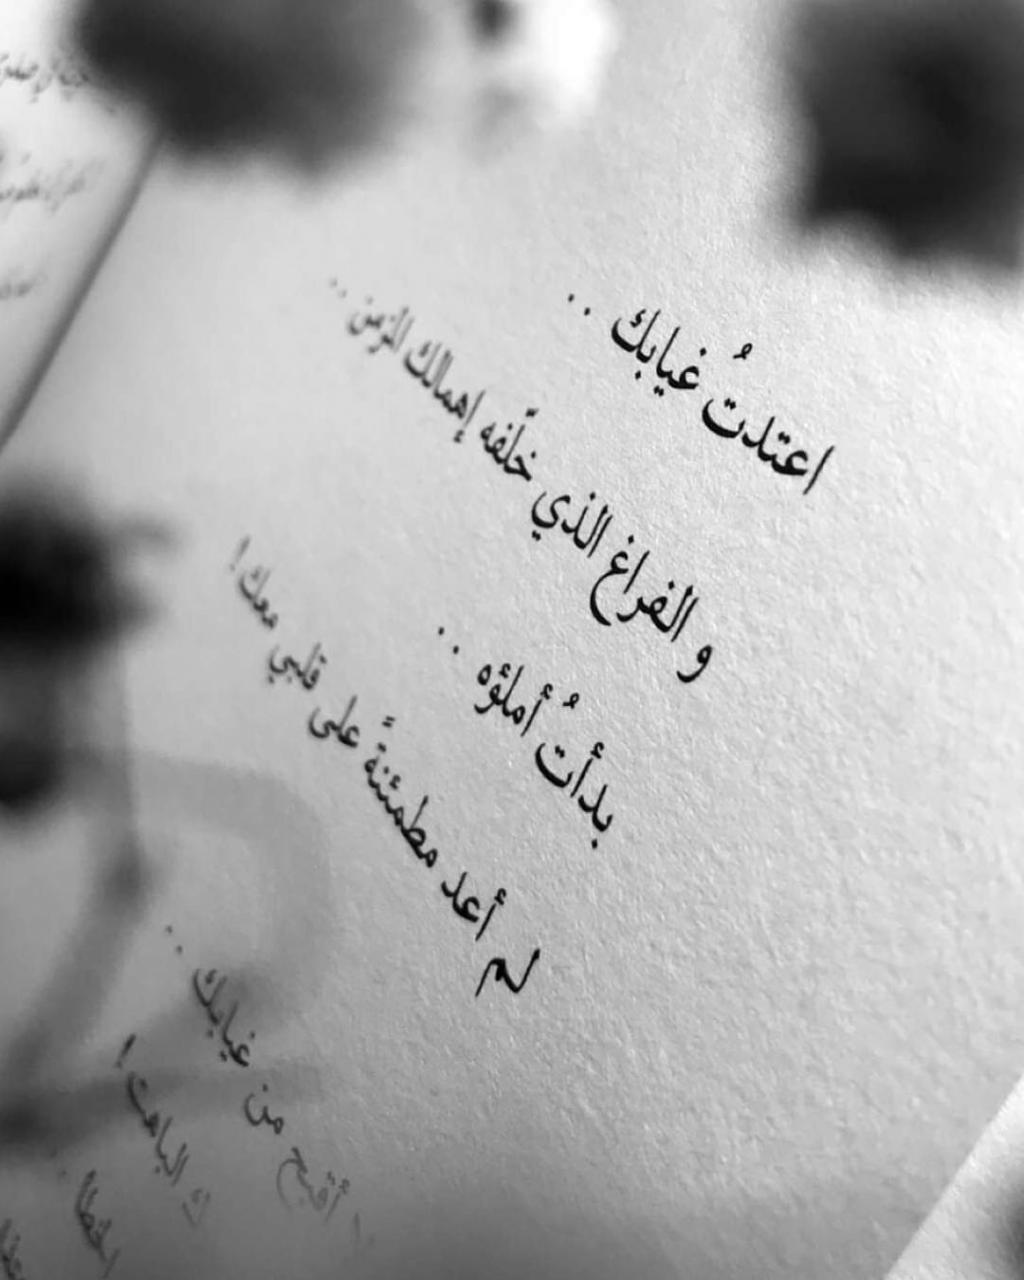 اعتدتُ غيابك ..
و الفراغ الذي خلّفه إهمالك المزمن ..
بدأتُ أملؤه ..
لم أعد مطمئنةً على قلبي معك !
أقبح من غيابك ..
الباهت !